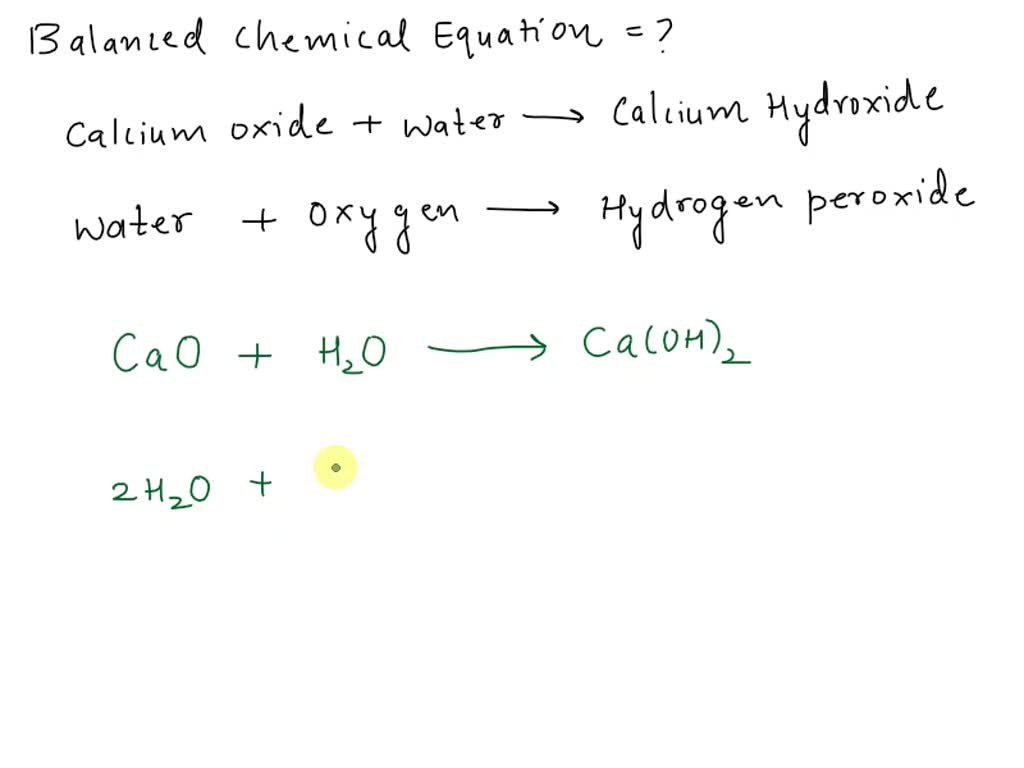 Balanced Chemical Equation = ?
Calcium oxide + water → Calcium Hydroxide
Water + Oxygen → Hydrogen peroxide
CaO + H₂O → Ca(OH)₂
2H₂O +